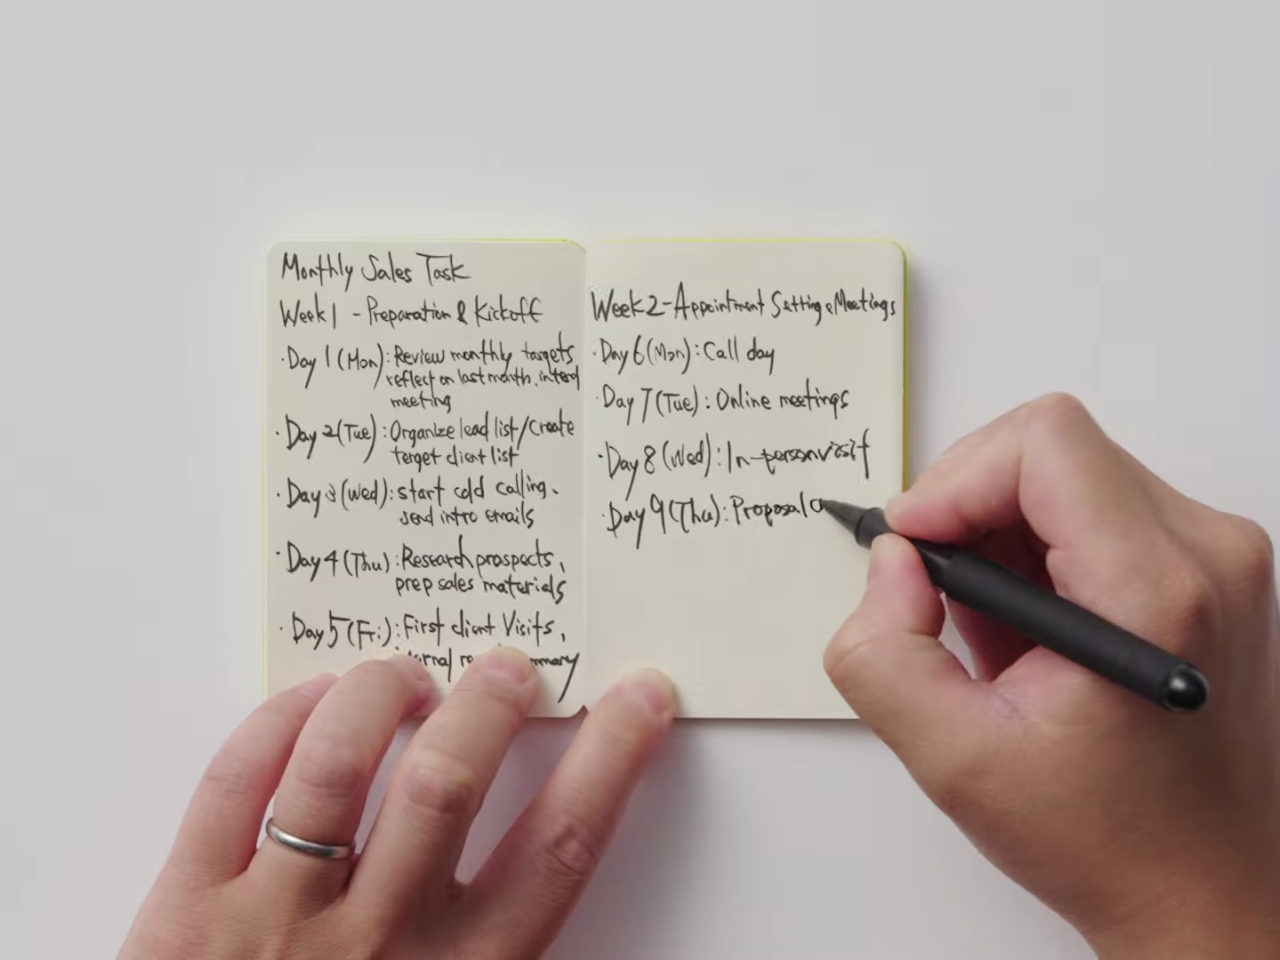 Monthly Sales Task
Week 1 - Preparation & Kickoff
·Day 1 (Mon): Review monthly targets
reflect on last month.
meeting
·Day 2 (Tue): Organize lead list/Create
target client list
·Day 3 (Wed): start cold calling.
send intro emails
·Day 4 (Thu): Research prospects,
prep sales materials
·Day 5 (Fri): First client Visits,
Week 2 - Appointment Setting & Meetings
·Day 6 (Mon): Call day
·Day 7 (Tue): Online meetings
·Day 8 (Wed): In-person visit
·Day 9 (Thu): Proposal